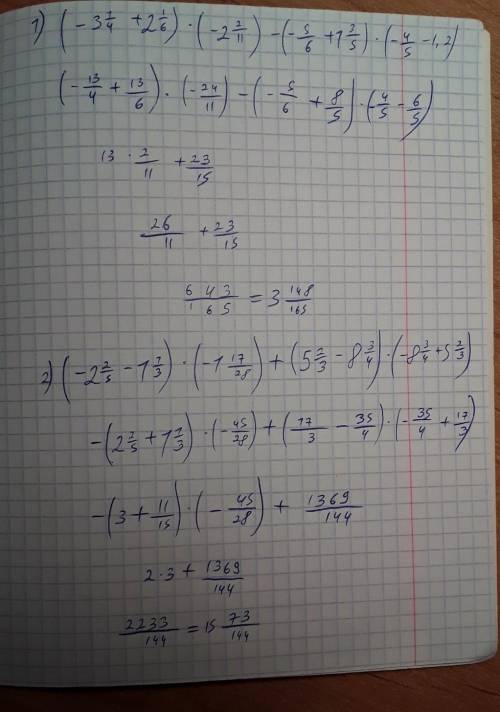 1) (-3 1/4 + 2 1/6) · (-2 2/11) - (-5/6 + 1 3/5) · (-4/5 - 1,2)
(-13/4 + 13/6) · (-24/11) - (-5/6 + 8/5) · (-4/5 - 6/5)
13 · 2/11 + 23/15
26/11 + 23/15
643/165 = 3 148/165
2) (-2 2/5 - 1 1/3) · (-1 17/28) + (5 2/3 - 8 3/4) · (-8 3/4 + 5 2/3)
-(2 2/5 + 1 1/3) · (-45/28) + (17/3 - 35/4) · (-35/4 + 17/3)
-(3 + 11/15) · (-45/28) + 1369/144
2 · 3 + 1369/144
2233/144 = 15 73/144